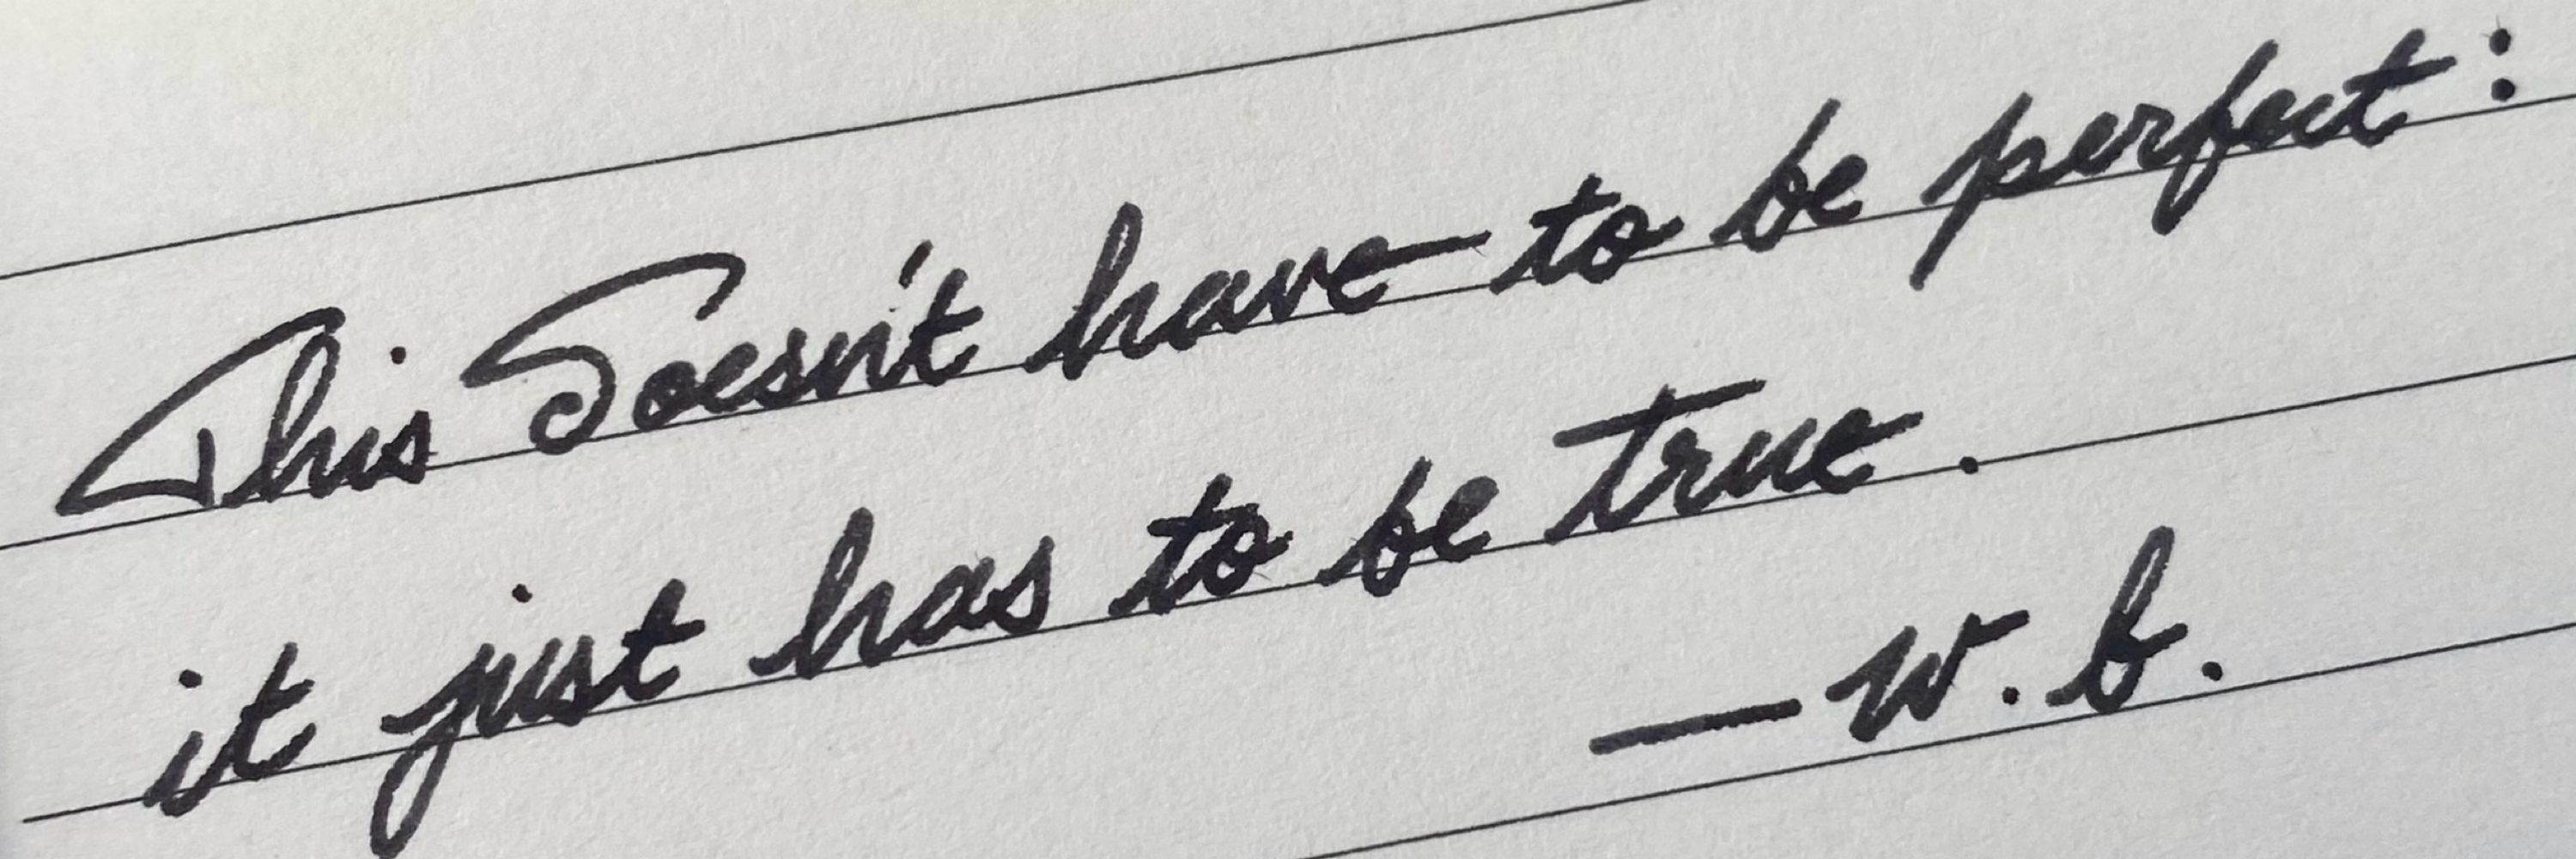 This doesn't have to be perfect:
it just has to be true.
— W. B.